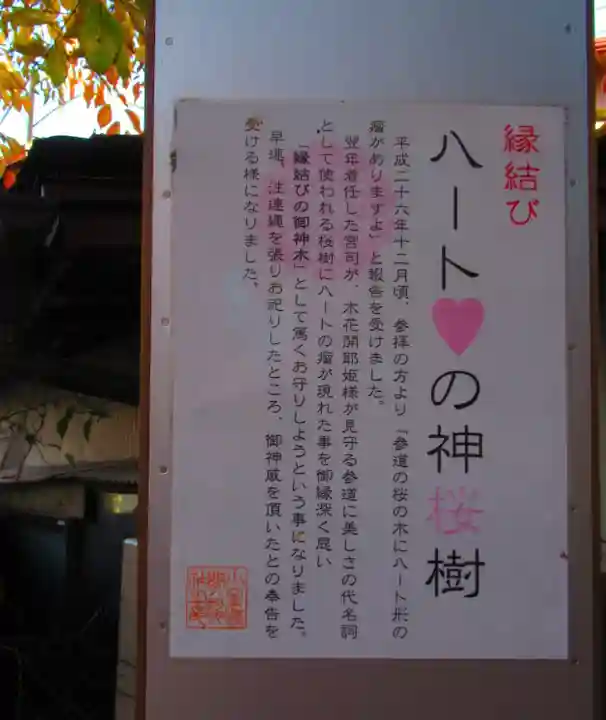 縁結び
ハート♥の神桜樹
平成二十六年十二月頃、参拝の方より「参道の桜の木にハート形の
瘤がありますよ」と報告を受けました。
翌年着任した宮司が、木花開耶姫様が見守る参道に美しさの代名詞
として使われる桜樹にハートの瘤が現れた事を御縁深く思い
「縁結びの御神木」として篤くお守りしようという事になりました。
早速、注連縄を張りお祀りしたところ、御神威を頂いたとの奉告を
受ける様になりました。